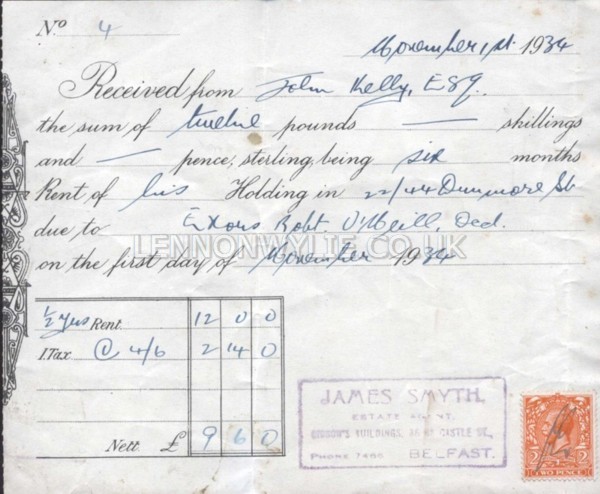 No. 4
November, 1st. 1934
Received from John Kelly, ESq.
the sum of twelve pounds — shillings
and — pence, sterling, being six months
Rent of his Holding in 22/44 Dunmore St
due to Exors Robt. O'Neill, Decd.
LENNONWYLIE.CO.UK
on the first day of November 1934
1/2 yrs Rent 12 0 0
I.Tax @ 4/6 2 14 0
Nett £ 9 6 0
JAMES SMYTH,
ESTATE AGENT,
BUILDINGS, CASTLE ST.,
PHONE BELFAST.
2 2
TWO PENCE